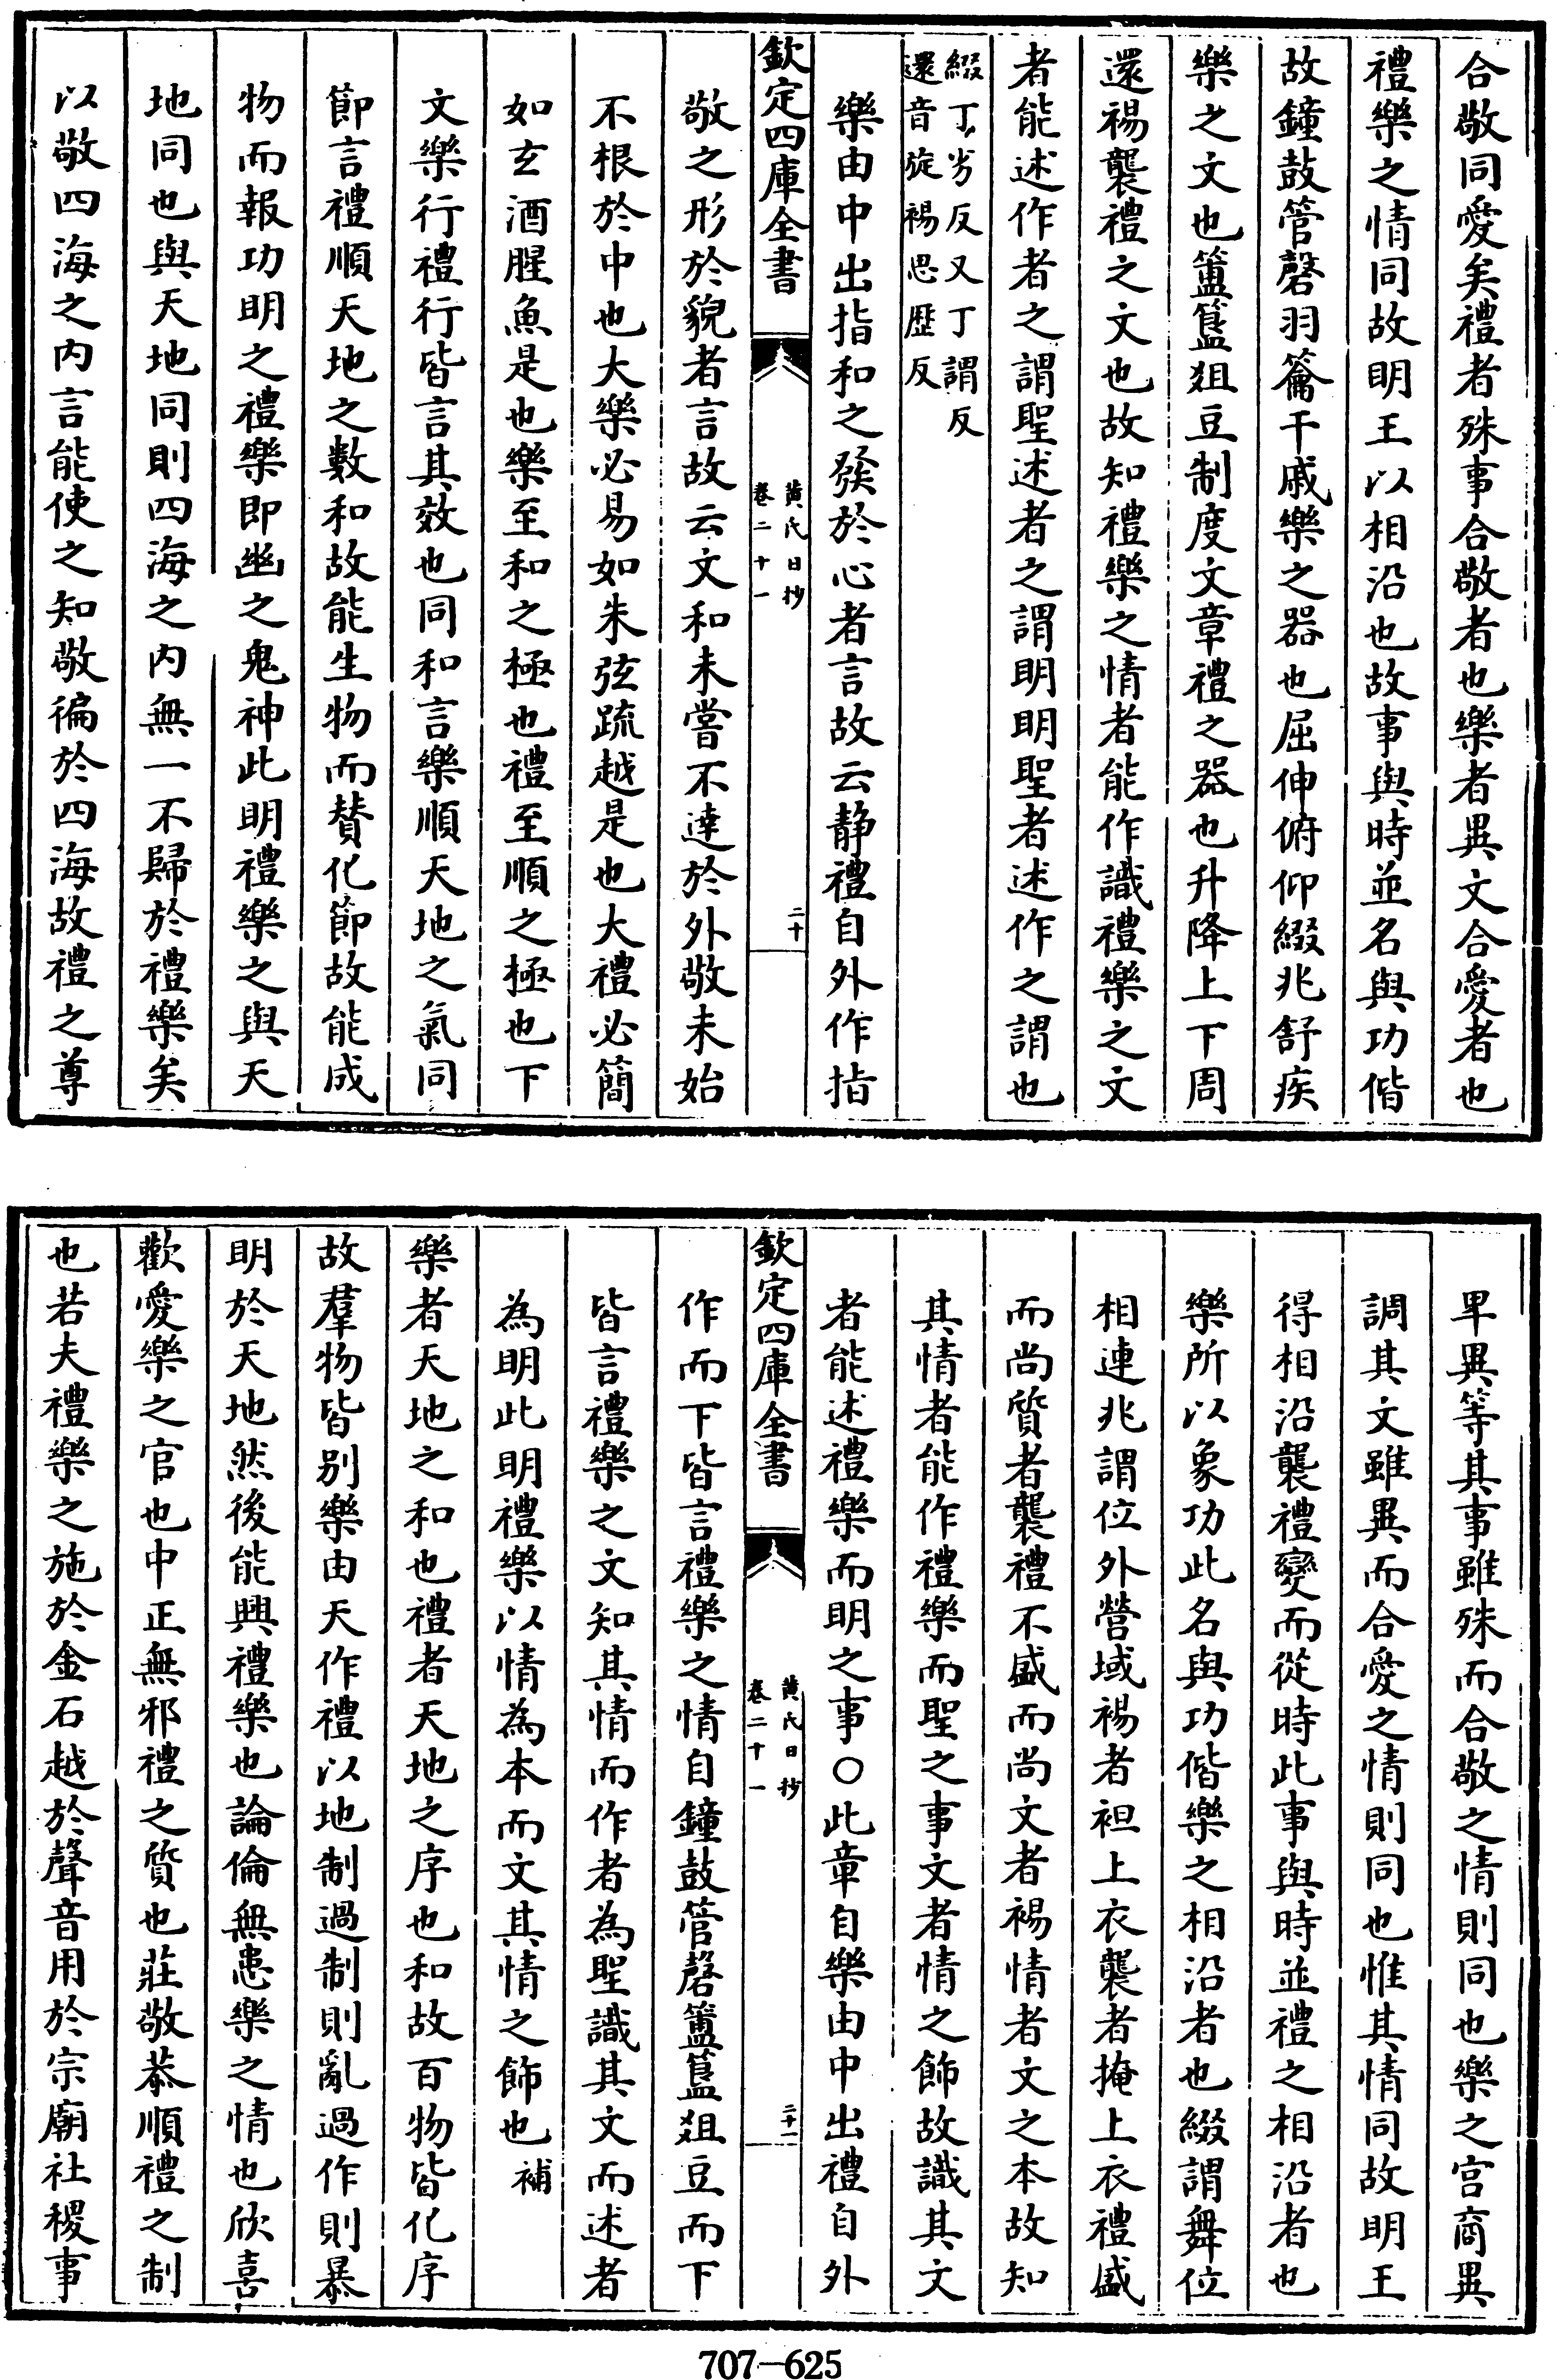 合敬同愛矣禮者殊事合敬者也樂者異文合愛者也
禮樂之情同故明王以相沿也故事與時並名與功偕
故鐘鼓管磬羽籥干戚樂之器也屈伸俯仰綴兆舒疾
樂之文也簠簋俎豆制度文章禮之器也升降上下周
還裼襲禮之文也故知禮樂之情者能作識禮樂之文
者能述作者之謂聖述者之謂明明聖者述作之謂也
綴丁劣反又丁謂反
還音旋裼思歴反
樂由中出指和之發於心者言故云静禮自外作指
欽定四庫全書
黄氏日抄
卷二十一
二十
敬之形於貌者言故云文和未嘗不達於外敬未始
不根於中也大樂必易如朱弦疏越是也大禮必簡
如玄酒腥魚是也樂至和之極也禮至順之極也下
文樂行禮行皆言其效也同和言樂順天地之氣同
節言禮順天地之數和故能生物而賛化節故能成
物而報功明之禮樂即幽之鬼神此明禮樂之與天
地同也與天地同則四海之内無一不歸於禮樂矣
以敬四海之内言能使之知敬徧於四海故禮之尊
卑異等其事雖殊而合敬之情則同也樂之宫商異
調其文雖異而合愛之情則同也惟其情同故明王
得相沿襲禮變而從時此事與時並禮之相沿者也
樂所以象功此名與功偕樂之相沿者也綴謂舞位
相連兆謂位外營域裼者袒上衣襲者掩上衣禮盛
而尚質者襲禮不盛而尚文者裼情者文之本故知
其情者能作禮樂而聖之事文者情之飾故識其文
者能述禮樂而明之事○此章自樂由中出禮自外
欽定四庫全書
黄氏日抄
卷二十一
二十一
作而下皆言禮樂之情自鐘鼓管磬簠簋俎豆而下
皆言禮樂之文知其情而作者為聖識其文而述者
為明此明禮樂以情為本而文其情之飾也補
樂者天地之和也禮者天地之序也和故百物皆化序
故羣物皆别樂由天作禮以地制過制則亂過作則暴
明於天地然後能興禮樂也論倫無患樂之情也欣喜
歡愛樂之官也中正無邪禮之質也莊敬恭順禮之制
也若夫禮樂之施於金石越於聲音用於宗廟社稷事
707—625